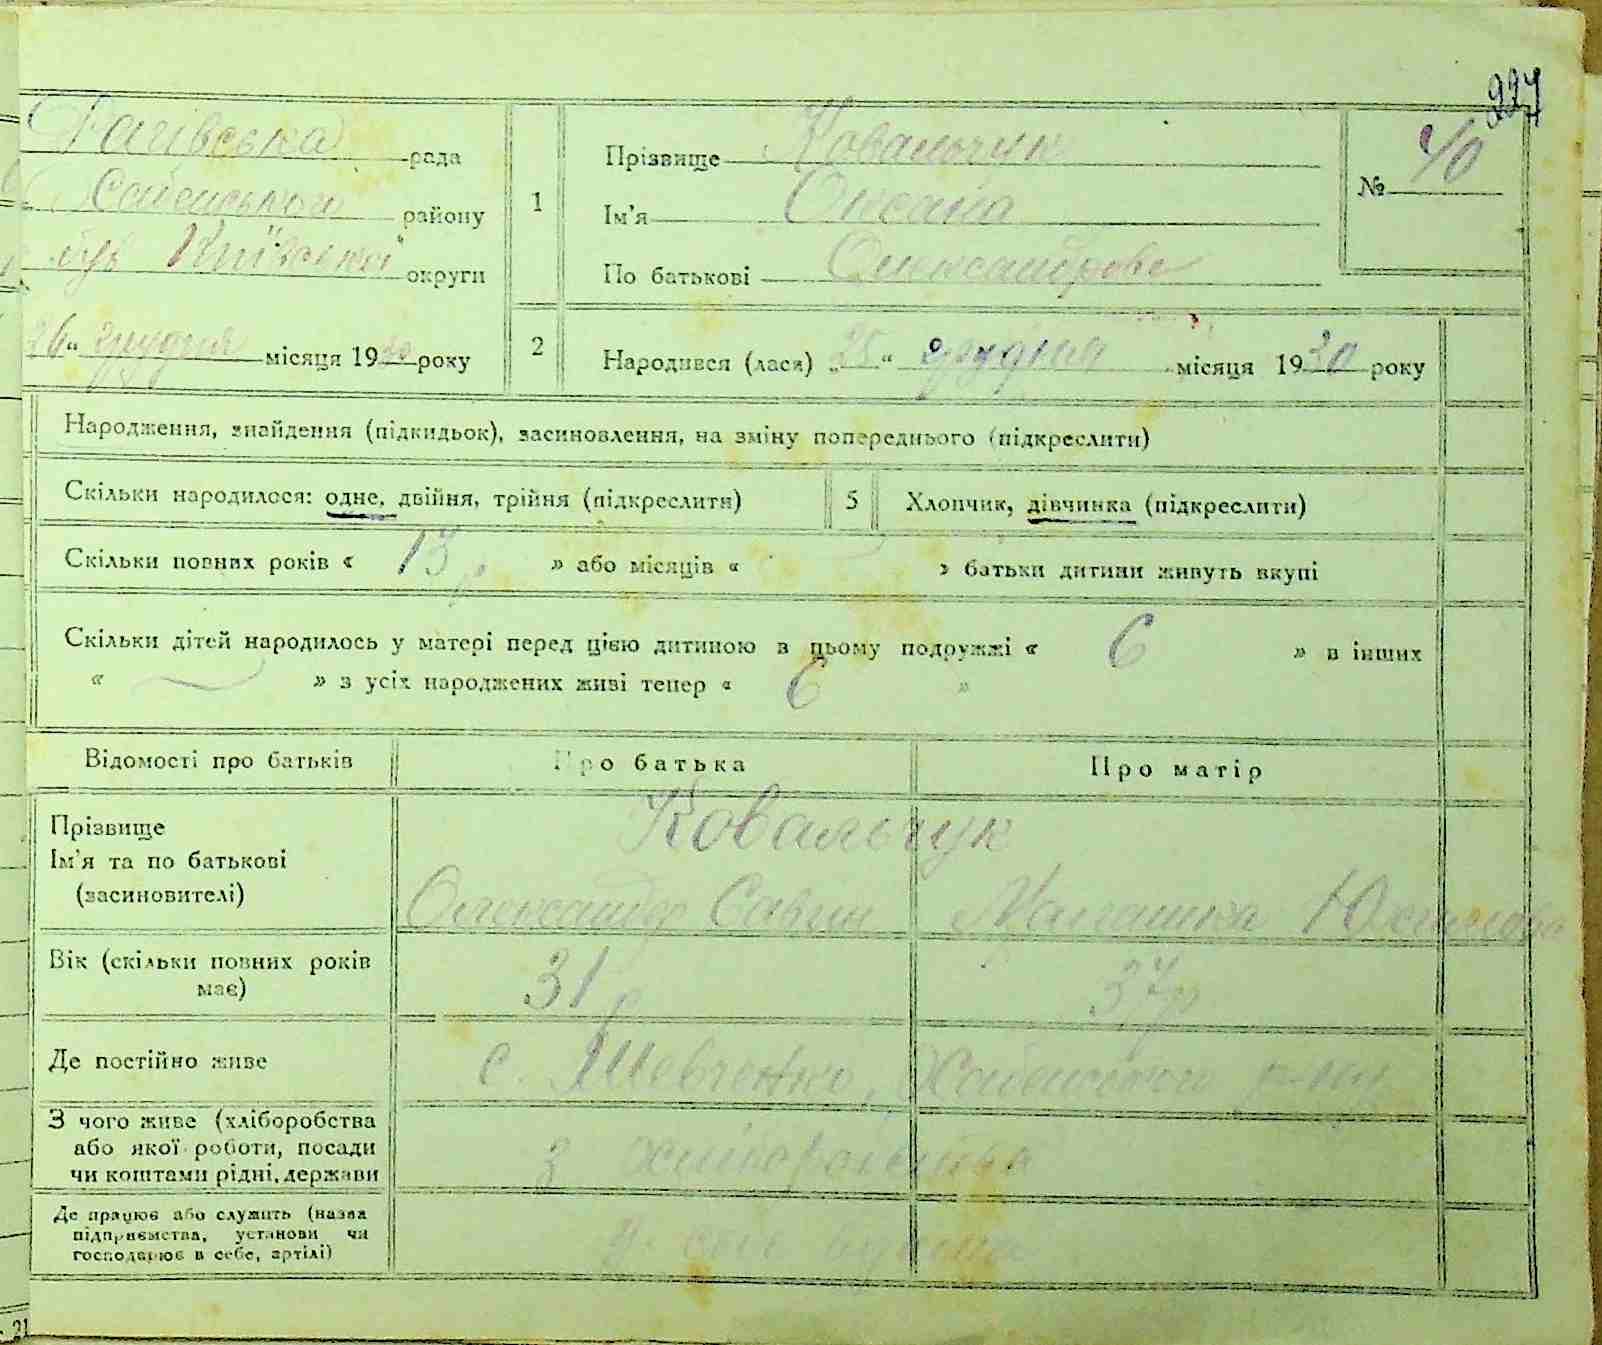 227
Рагівська рада
Хабенського району
Київської округи
26 " грудня місяця 1930 року
1
Прізвище Ковальчук
Ім'я Оксана
По батькові Олександрова
№ 40
2
Народився (лася) „ 25 " грудня місяця 1930 року
Народження, знайдення (підкидьок), засиновлення, на зміну попереднього (підкреслити)
Скільки народилося: одне, двійня, трійня (підкреслити)
5
Хлопчик, дівчинка (підкреслити)
Скільки повних років « 13 р » або місяців « » батьки дитини живуть вкупі
Скільки дітей народилось у матері перед цією дитиною в цьому подружжі « 6 » в інших
« — » з усіх народжених живі тепер « 6 »
Відомості про батьків
Про батька
Про матір
Прізвище
Ім'я та по батькові
(засиновителі)
Ковальчук
Олександр Савин
Малашка
Вік (скільки повних років
має)
31 р
37 р
Де постійно живе
с. Шевченко, Хабенського р-ну
З чого живе (хліборобства
або якої роботи, посади
чи коштами рідні, держави
з хліборобства
Де працює або служить (назва
підприємства, установи чи
господарює в себе, артілі)
21